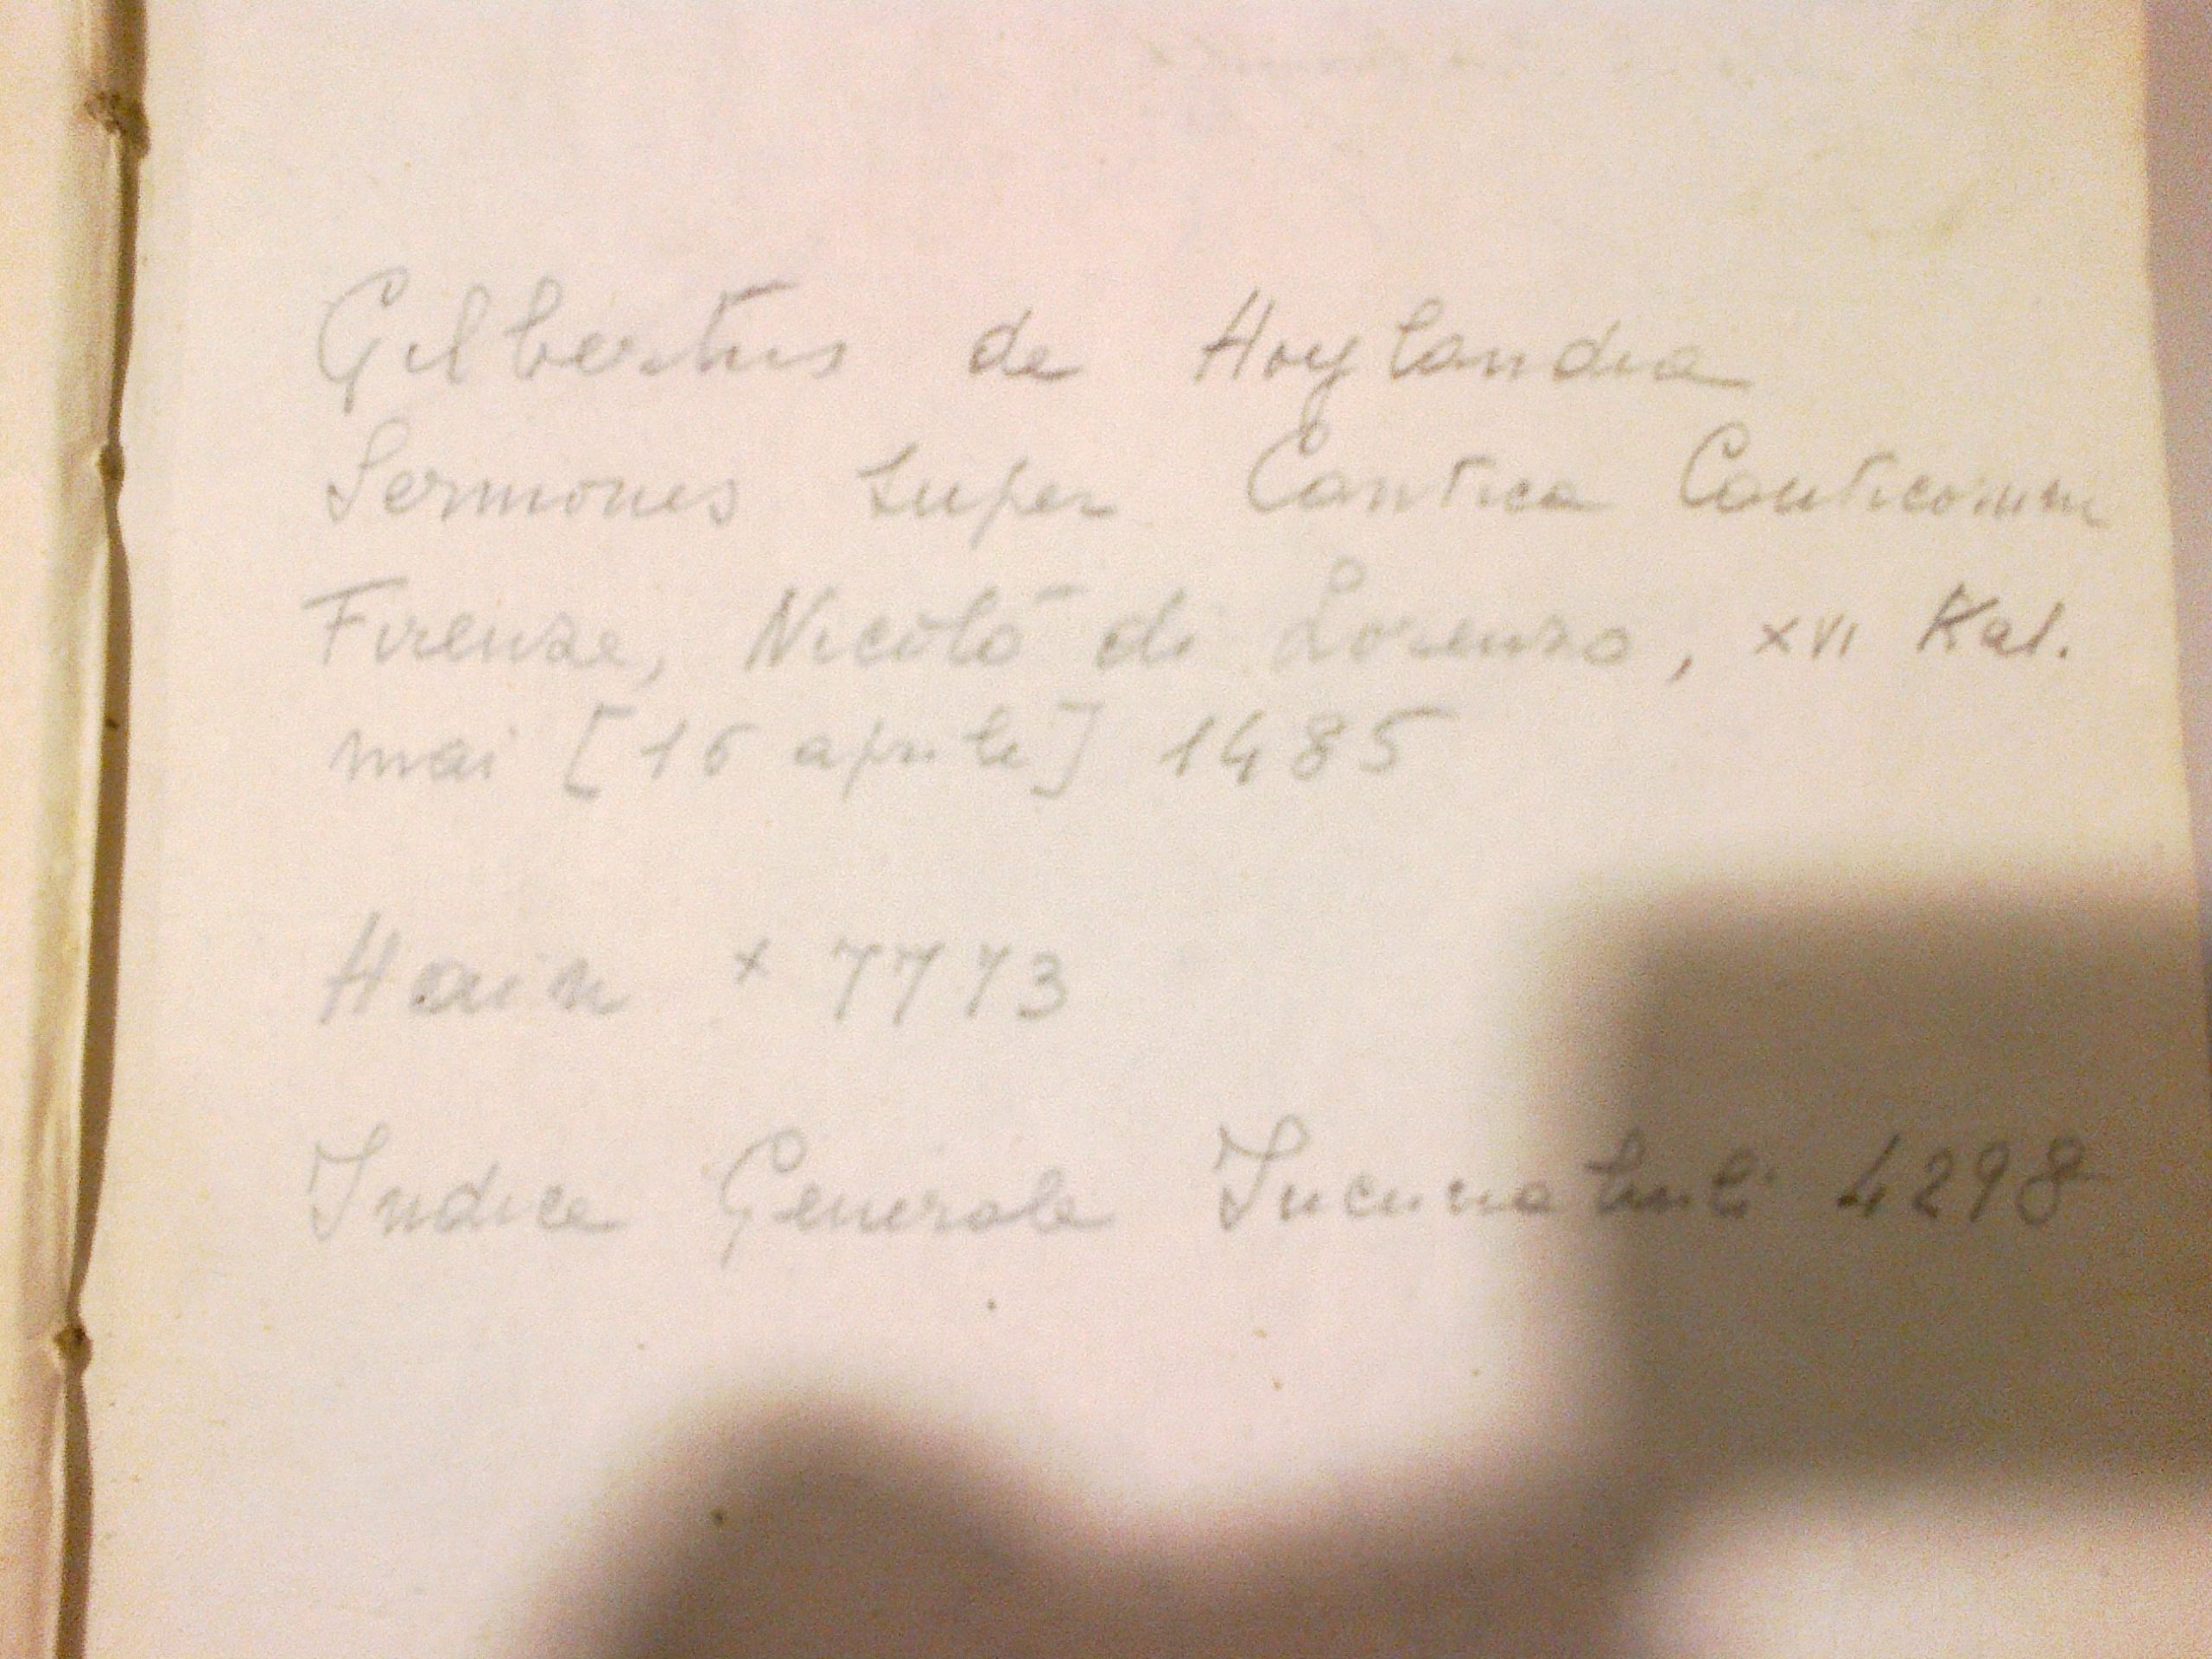 Gilbertus de Hoylandia
Sermones super Cantica Canticorum
Firenze, Nicolò di Lorenzo, XVI Kal.
mai [16 aprile] 1485
Hain * 7773
Indice Generale Incunabuli 4298